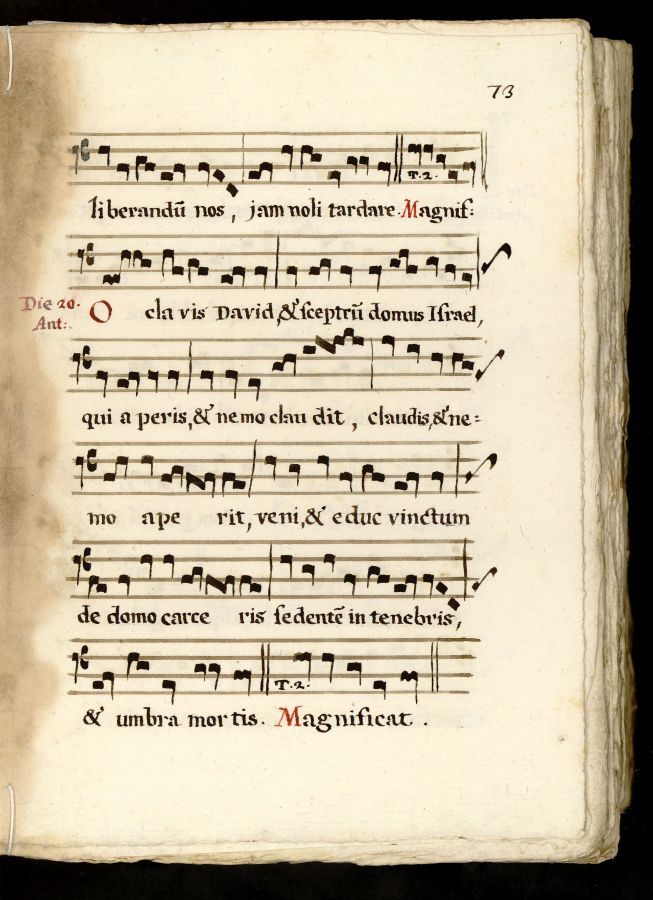 73
T. 2.
liberandū nos, jam noli tardare. Magnif:
Die 20.
Ant:
O cla vis David, &̓ sceptrū domus Israel,
qui a peris, &̓ ne mo clau dit, claudis, &̓ ne:
mo ape rit, veni, &̓ educ vinctum
de domo carce ris sedentē in tenebris,
T. 2.
&̓ umbra mor tis. Magnificat.